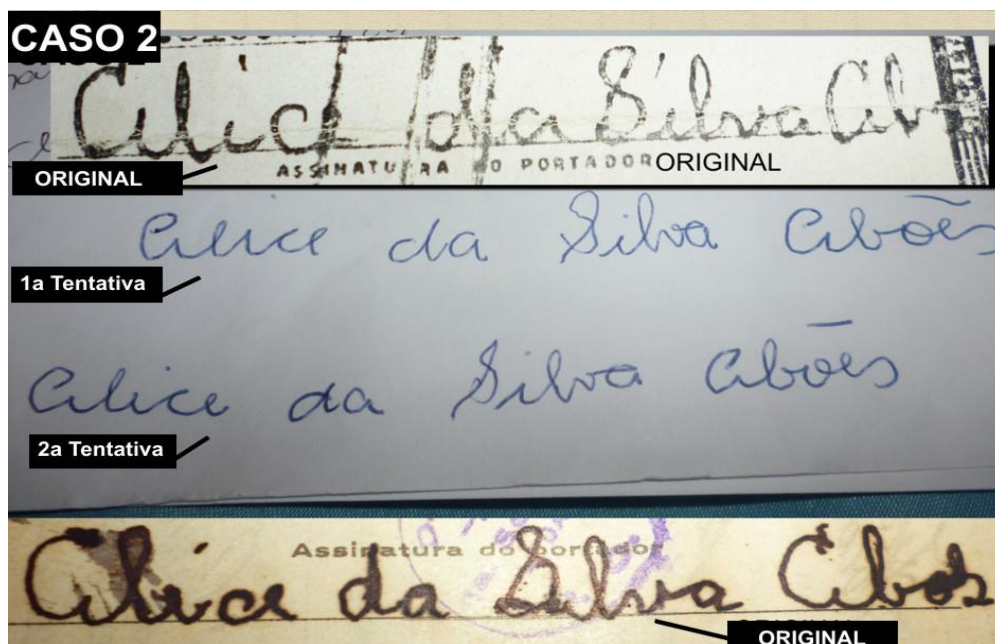 CASO 2
Alice da Silva Ab
ASSINATURA DO PORTADOR ORIGINAL
ORIGINAL
Alice da Silva Abões
1a Tentativa
Alice da Silva Abões
2a Tentativa
Assinatura do portador
Alice da Silva Abos
ORIGINAL